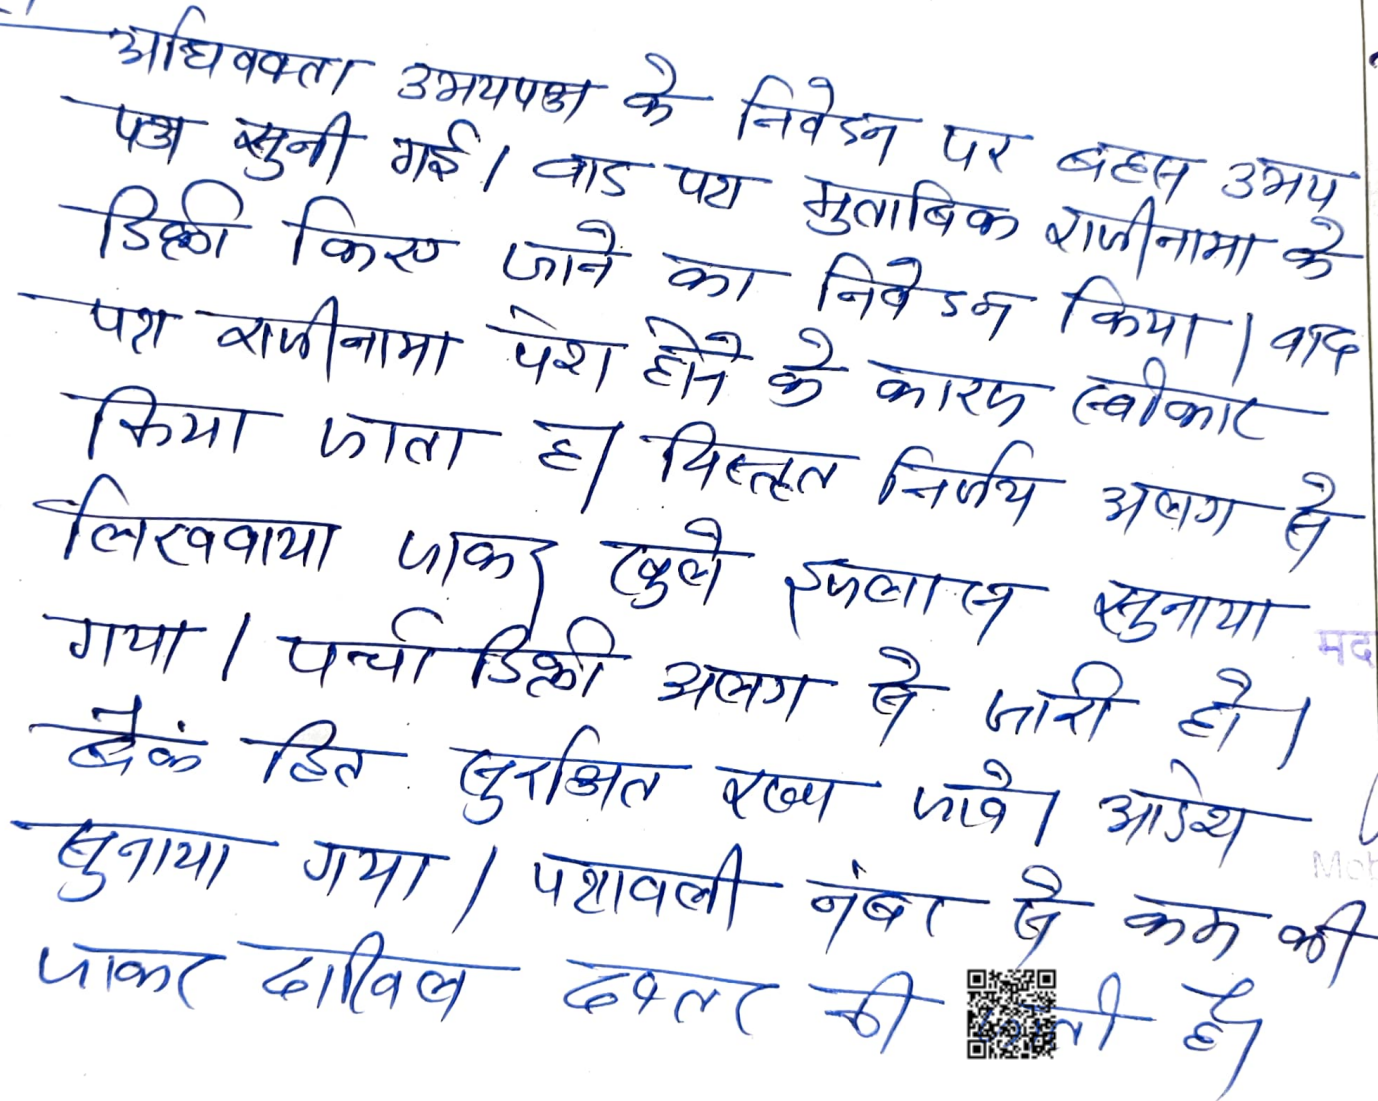 अधिवक्ता उभयपक्ष के निवेदन पर बहस उभय
पक्ष सुनी गई। वाद पत्र मुताबिक राजीनामा के
डिक्री किए जाने का निवेदन किया। वाद
पत्र राजीनामा पेश होने के कारण स्वीकार
किया जाता है। विस्तृत निर्णय अलग से
लिखवाया जाकर खुले इजलास सुनाया
गया। पर्चा डिक्री अलग से जारी हो।
बैंक हित सुरक्षित रखा जावे। आदेश
सुनाया गया। पत्रावली नंबर से कम की
जाकर दाखिल दफ्तर की जाती है।
मद
Mob